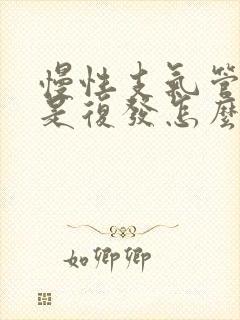 慢性支氣管
是復發怎麼
如卿卿